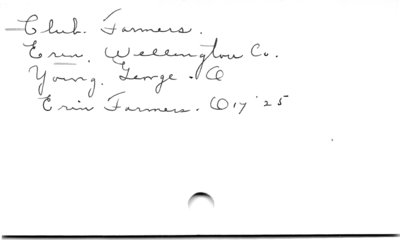 Club. Farmers.
Erin. Wellington Co.
Young. George. O
Erin Farmers. O 17 '25